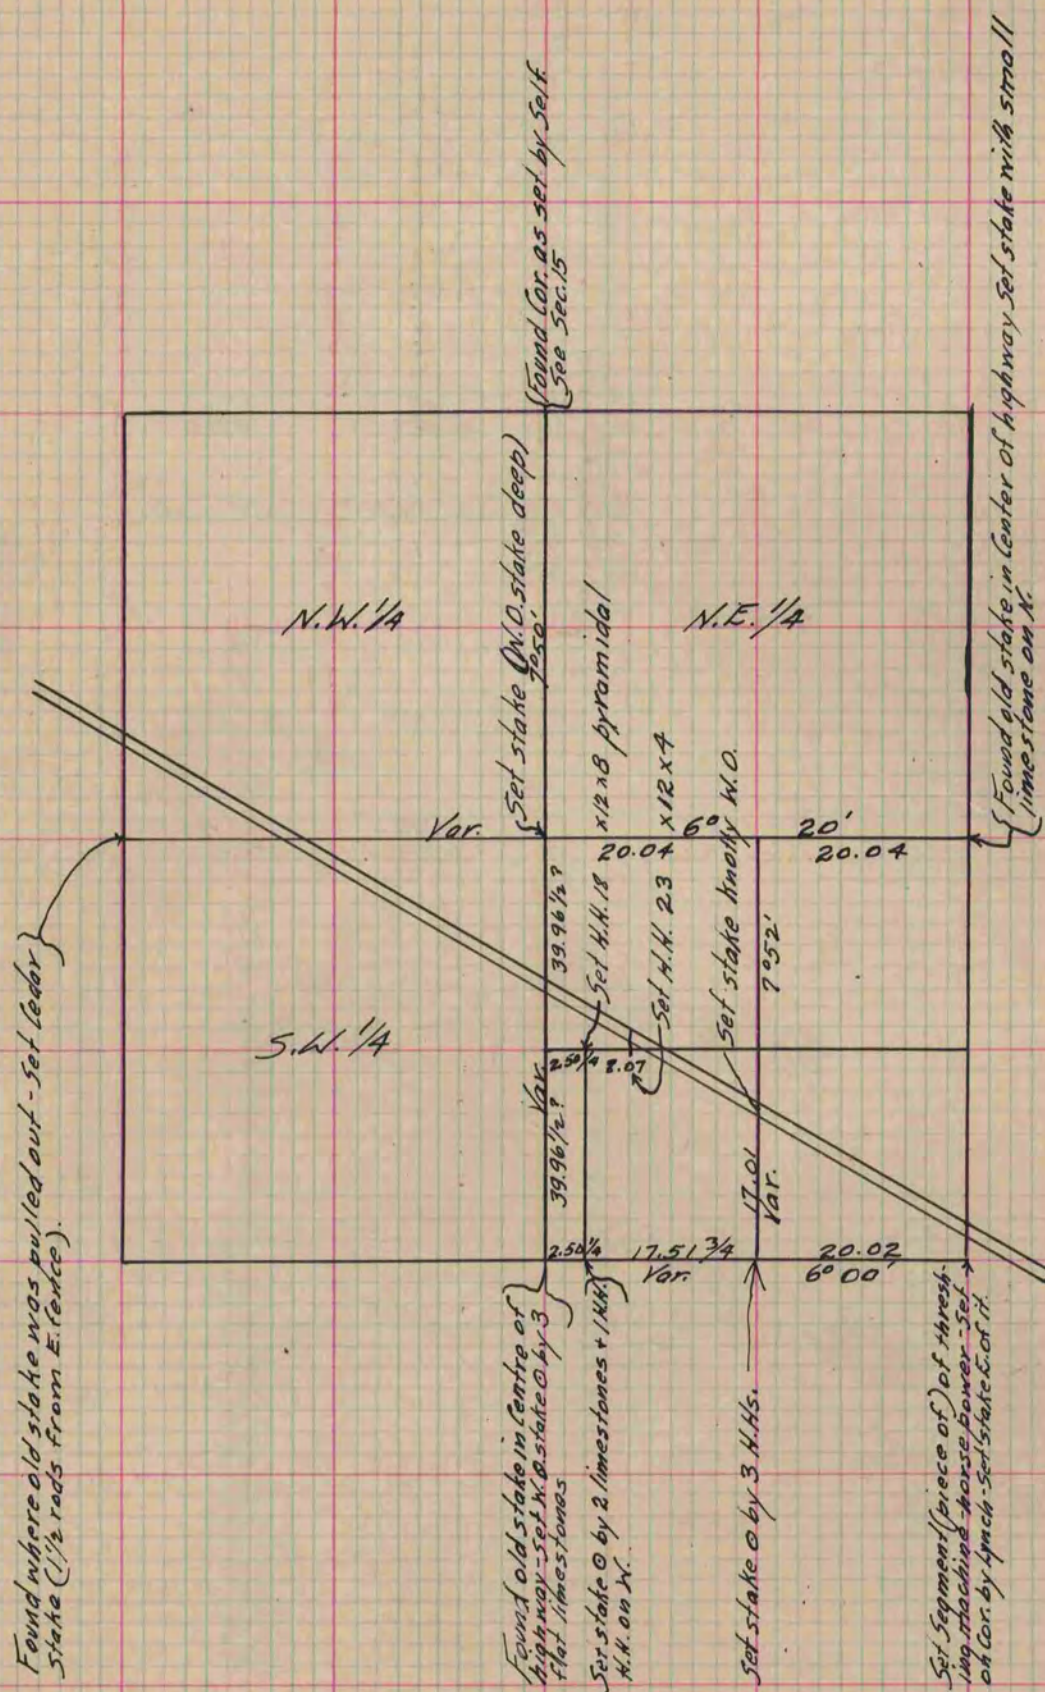 Found where old stake was pulled out - Set Cedar
stake (1 1/2 rods from E. fence).
Found Cor. as set by Self.
See Sec. 15
Set stake (W.O. stake deep)
7° 50'
N.W. 1/4
N.E. 1/4
S.W. 1/4
Var.
6° 20'
20.04
20.04
Set H.H. 18 x12x8 pyramidal
Set H.H. 23 x12x4
Set stake knotty W.O.
39.96 1/2?
39.96 1/2?
Var.
2.50 1/4
8.07
7° 52'
17.01
Var.
2.50 1/4
17.51 3/4
Var.
20.02
6° 00'
Found old stake in Center of highway Set stake with small
limestone on N.
Found old stake in Centre of
highway - Set W.O. stake 0 by 3
flat limestones
Set stake 0 by 2 limestones + 1 H.H.
H.H. on W.
Set stake 0 by 3 H.Hs.
Set Segment (piece of) of thresh-
ing machine - horse power - Set
on Cor. by Lynch - Set stake E. of it.